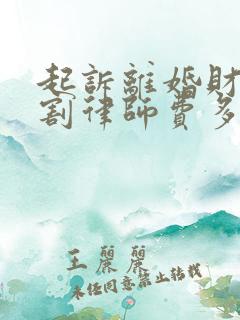 起訴離婚財
割律師費多
王麗麗
未經同意禁止轉載